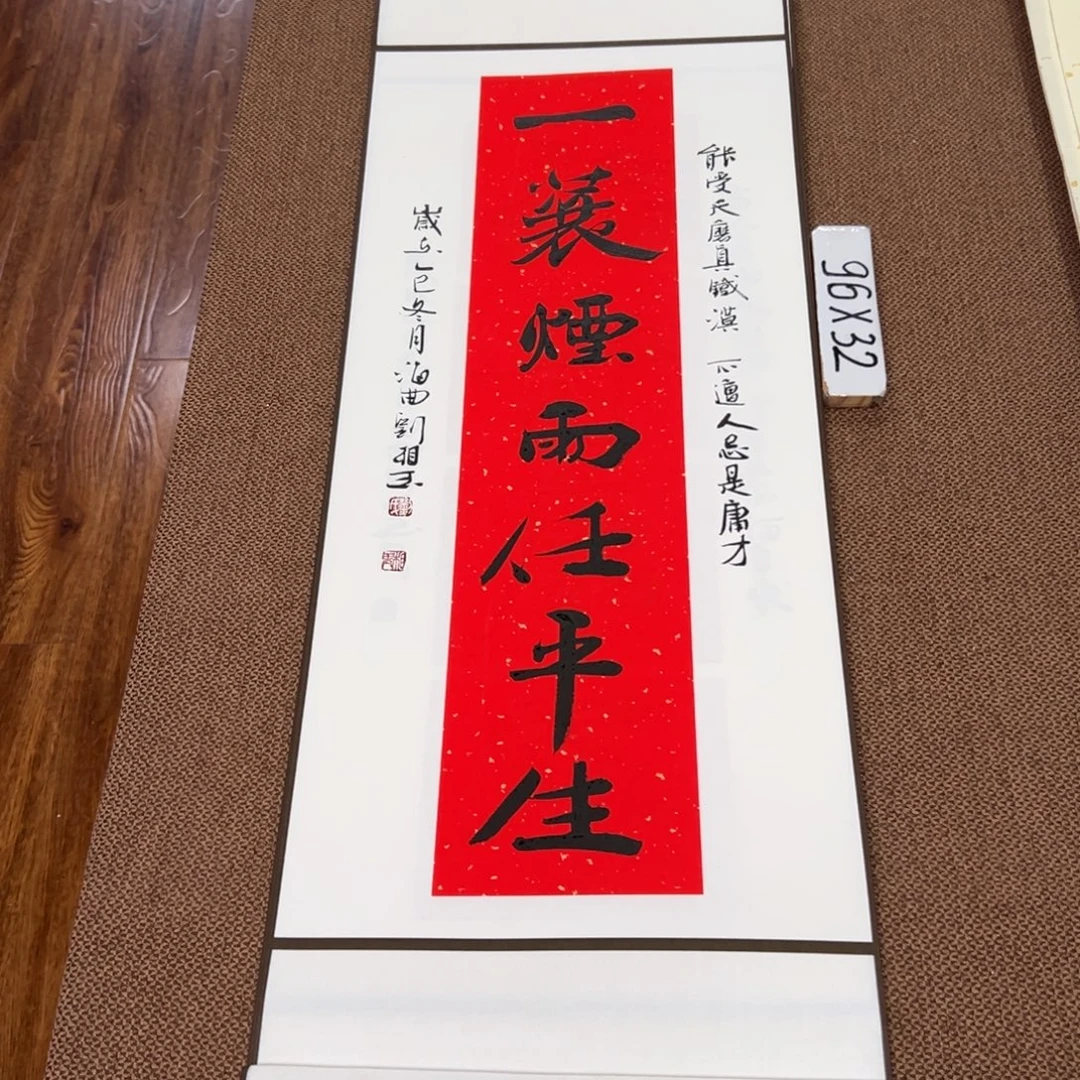 能受天磨真鐵漢 不遭人忌是庸才
一蓑煙雨任平生
歲在乙巳冬月海曲劉
96X32